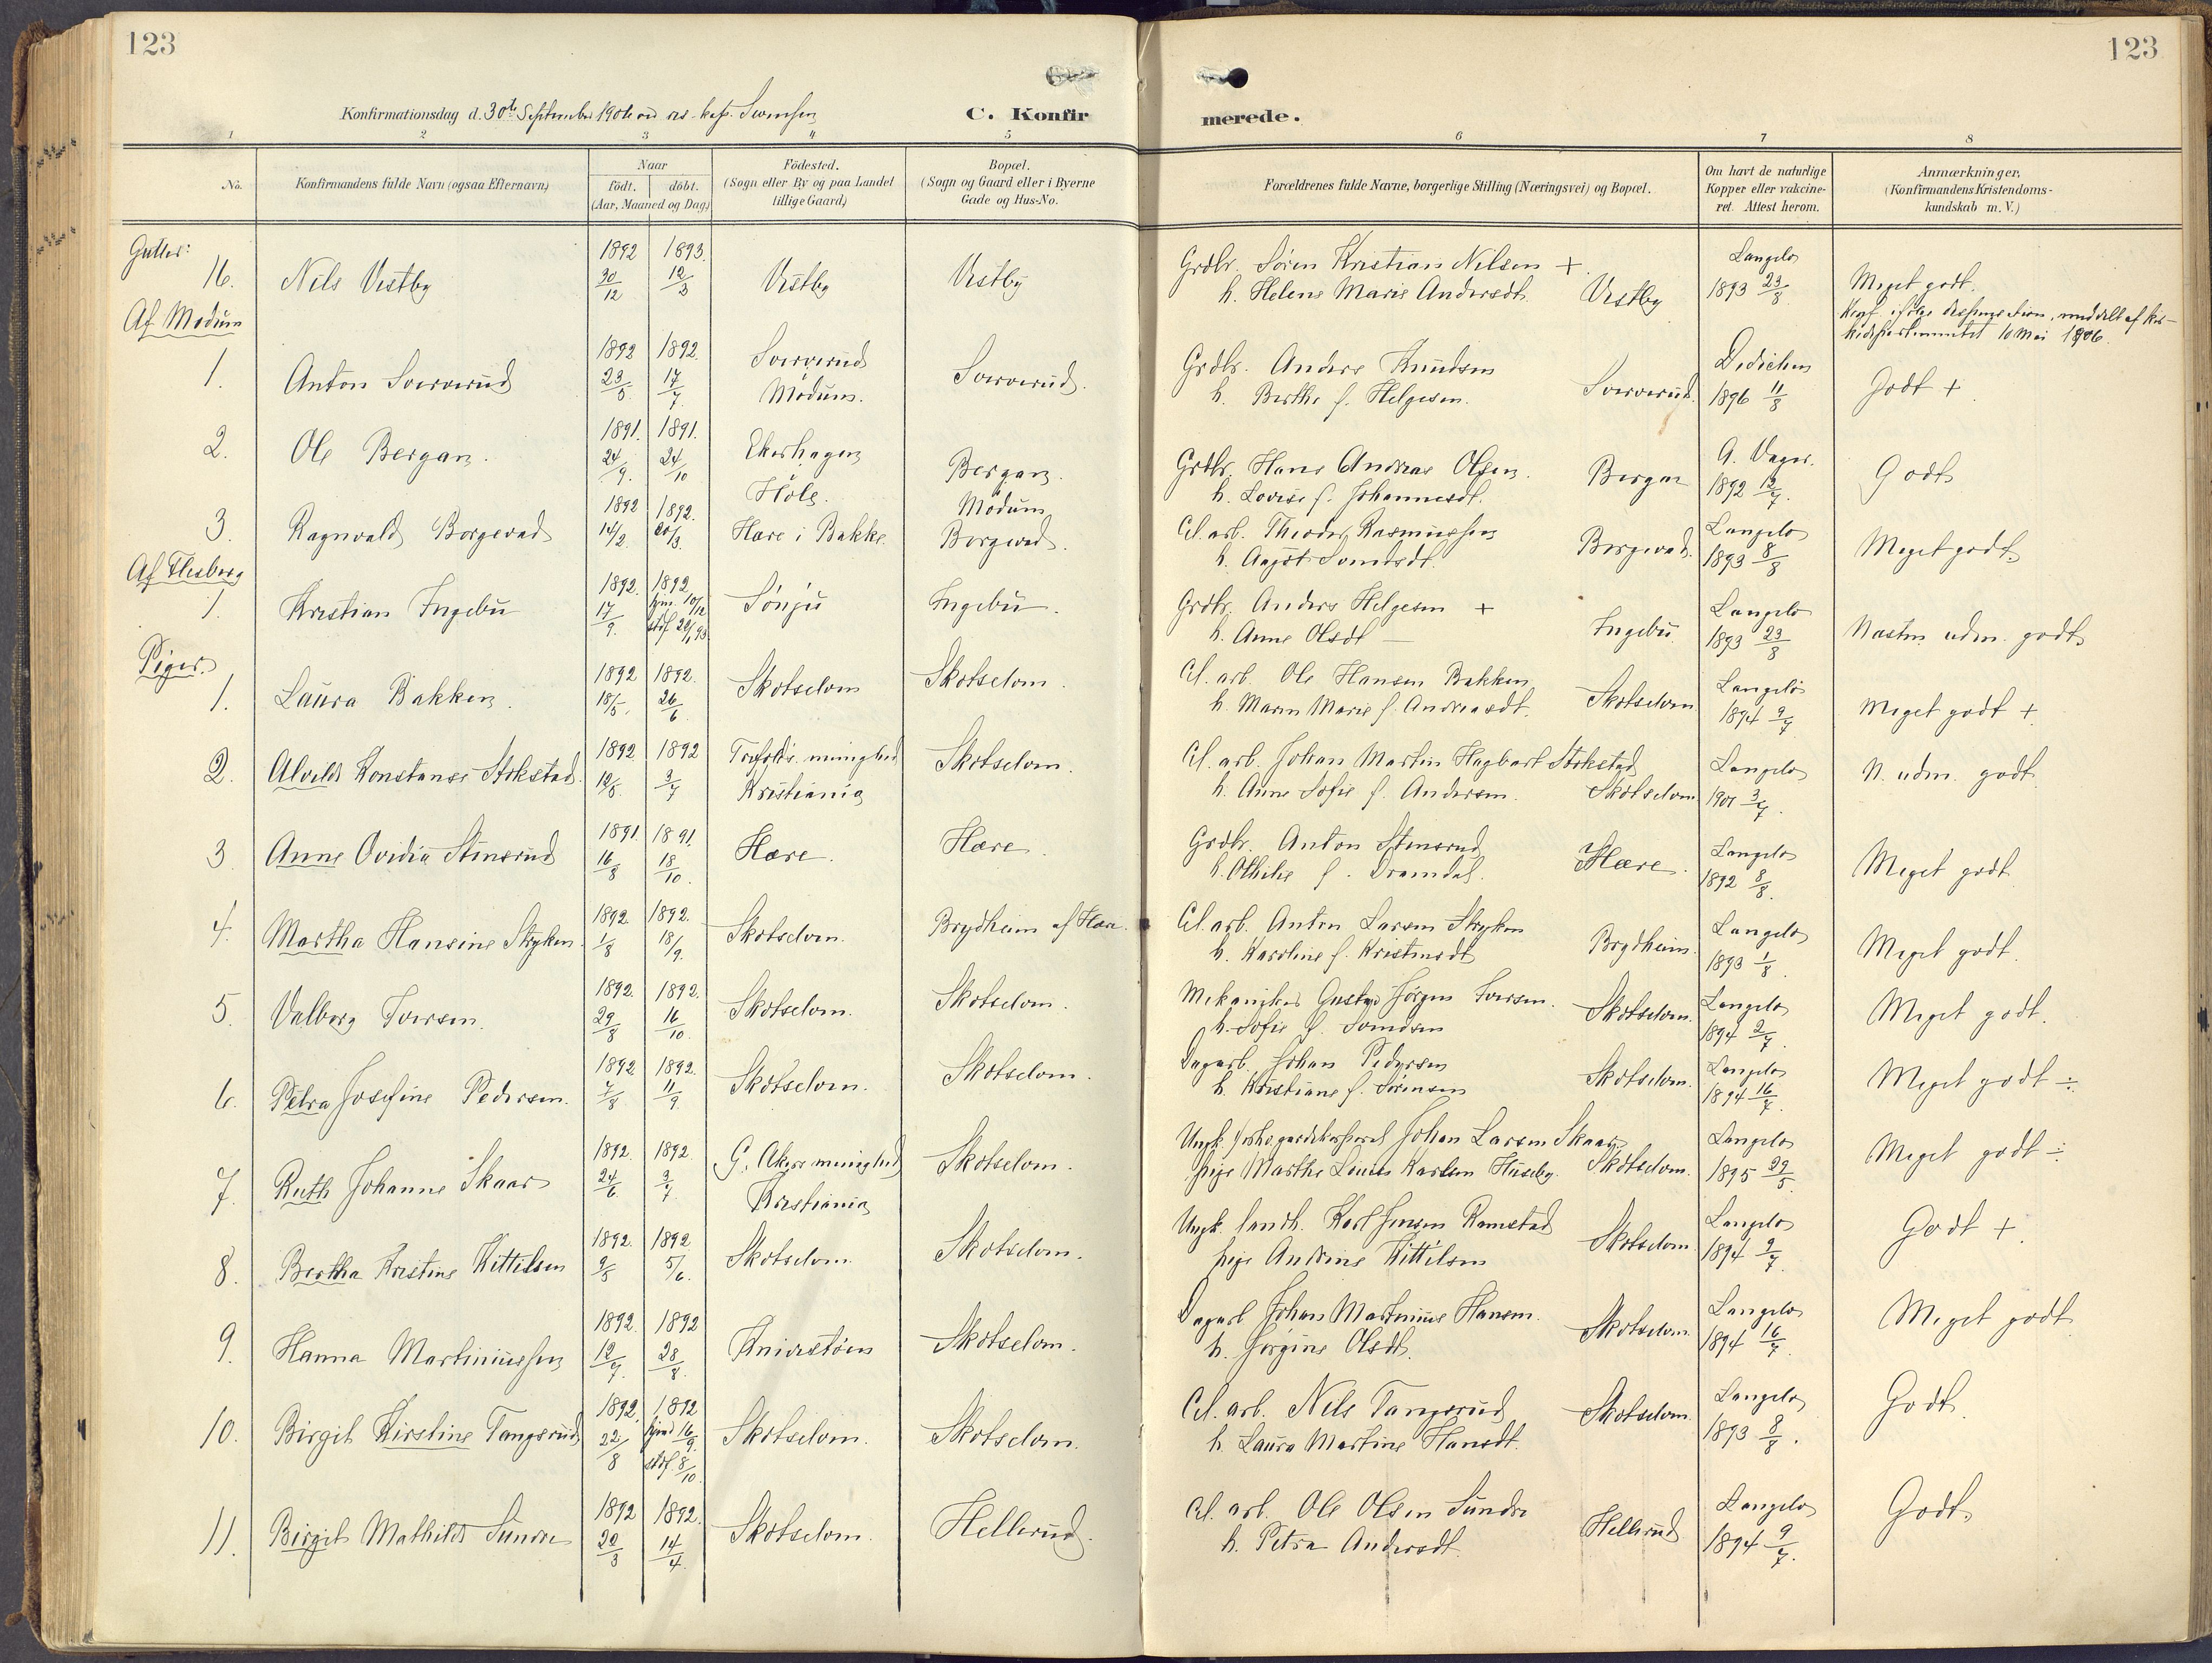 123
123
Konfirmationsdag d. 30te September 1906 ved res. kap.
C. Konfirmerede.
1 2 3 4 5 6 7 8
No.
Konfirmandens fulde Navn (ogsaa Efternavn)
Naar
födt. döbt.
(Aar, Maaned og Dag.)
Födested.
(Sogn eller By og paa Landet
tillige Gaard)
Bopæl.
(Sogn og Gaard eller i Byerne
Gade og Hus-No.
Forældrenes fulde Navne, borgerlige Stilling (Næringsvei) og Bopæl.
Om havt de naturlige
Kopper eller vakcine-
ret. Attest herom.
Anmærkninger.
(Konfirmandens Kristendoms-
kundskab m. V.)
Gutter:
16. Nils Vestby 1892 30/12 1893 12/3 Vestby Vestby
Grdbr. Søren Kristian Nilsen +
h. Helene Marie Andersdt. Vestby
Langelo 1893 23/8
Meget godt.
Konf. ifølge dispensation, meddelt af Kir-
kedepartementet 10 Mai 1906.
Af Modum
1. Anton Sorverud 1892 23/5 1892 17/7 Sorverud Modum. Sorverud.
Grdbr. Anders Knudsen
h. Berthe f. Helgesen. Sorverud.
Didichen 1896 11/8
Godt +
2. Ole Bergan. 1891. 24/9. 1891. 24/10 Ekerhagen Hole. Bergan. Modum
Grdbr. Hans Andreas Olsen.
h. Lovise f. Johannesdt. Bergan
1892 12/7.
Godt
3. Ragnvald Borgevad 1892 14/2. 1892. 20/3. Hære i Bakke Borgevad.
Cel. arb. Theodor Rasmussen
h. Borgevad.
Langelo 1893 8/8
Meget godt
Af Flesberg
1. Kristian Ingebu 1892. 17/9. 1892 hjm. 10/12 stdf. 22/1 93 Sønju Ingebu.
Grdbr. Anders Helgesen +
h. Anne Olsdt — Ingebu
Langelo 1893 23/8
Næsten udm. godt
Piger.
1. Laura Bakken. 1892 18/5. 1892. 26/6. Skotselven Skotselven.
Cel. arb. Ole Hansen Bakken
h. Maren Marie f. Andreasdt. Skotselven
Langelo 1894 9/7
Meget godt +
2. Alvilde Konstanse Stokstad. 1892 12/5. 1892 3/7 Trefoldi. menighed Kristiania Skotselven.
Cel. arb. Johan Martin Hagbart Stokstad
h. Anne Sofie f. Andersen. Skotselven
Langelo 1901 3/7.
N. udm. godt
3. Anne Ovidia Stensrud 1891. 16/8 1891. 18/10. Hære. Hære.
Grdbr. Anton Stensrud
h. Othilie f. Dramdal. Hære.
Langelo 1892 8/8.
Meget godt
4. Martha Hansine Stryken. 1892. 1/8 1892. 18/9. Skotselven. Brydheim af Hære.
Cel. arb. Anton Larsen Stryken
h. Karoline f. Kristensdt Brydheim.
Langelo 1893 1/8.
Meget godt.
5. Valborg Iversen. 1892. 29/8 1892. 16/10. Skotselven. Skotselven.
Mekaniker Gustav Jørgen Iversen.
h. Sofie f. Svendsen Skotselven.
Langelo 1894 2/7.
Meget godt.
6. Petra Josefine Pedersen. 1892 7/8 1892. 11/9. Skotselven. Skotselven.
Dagarb. Johan Pedersen
h. Kristiane f. Sørensen Skotselven.
Langelo 1894 16/7.
Meget godt ÷
7. Ruth Johanne Skaar 1892. 24/6. 1892. 3/7 G. Akers menighed Kristiania Skotselven.
Ungk. Johan Larsen Skaar
pige Marthe Louise Karlsen Huseby. Skotselven.
Langelo 1895 29/5.
Meget godt ÷
8. Bertha Kristine Kittilsen 1892. 9/5 1892 5/6. Skotselven Skotselven.
Ungk. landh. Karl Jensen Ramstad
pige Andrine Kittilsen Skotselven.
Langelo 1894 9/7.
Godt +
9. Hanna Martiniussen 1892. 12/7. 1892 28/8. Kniverstøen Skotselven.
Dagarb Johan Martinius Hansen.
h. Jørgine Olsdt. Skotselven
Langelo 1894 16/7.
Meget godt
10. Birgit Kirstine Tangerud 1892. 22/8 1892 hjmd 16/9. stdf. 8/10. Skotselven. Skotselven.
Cel. arb. Nils Tangerud
h. Laura Martine Hansdt. Skotselven
Langelo 1893 8/8.
Godt.
11. Birgit Mathilde Sundre 1892 20/3 1892. 14/4. Skotselven. Hellerud.
Cel. arb. Ole Olsen Sundre
h. Petra Andersdt. Hellerud
Langelo 1894 9/7.
Godt.